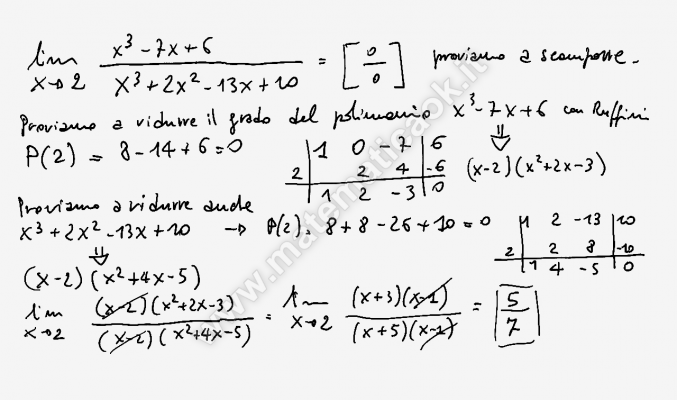 lim x→2 x³-7x+6 / x³+2x²-13x+10 = [0/0] proviamo a scomporre.
Proviamo a ridurre il grado del polinomio x³-7x+6 con Ruffini
P(2) = 8-14+6=0
1 0 -7 6
2 2 4 -6
1 2 -3 0
⇓
(x-2)(x²+2x-3)
Proviamo a ridurre anche
x³+2x²-13x+10 → P(2)= 8+8-26+10=0
1 2 -13 10
2 2 8 -10
1 4 -5 0
⇓
(x-2)(x²+4x-5)
lim x→2 (x-2)(x²+2x-3) / (x-2)(x²+4x-5) = lim x→2 (x+3)(x-1) / (x+5)(x-1) = 5/7
www.matematicaok.it